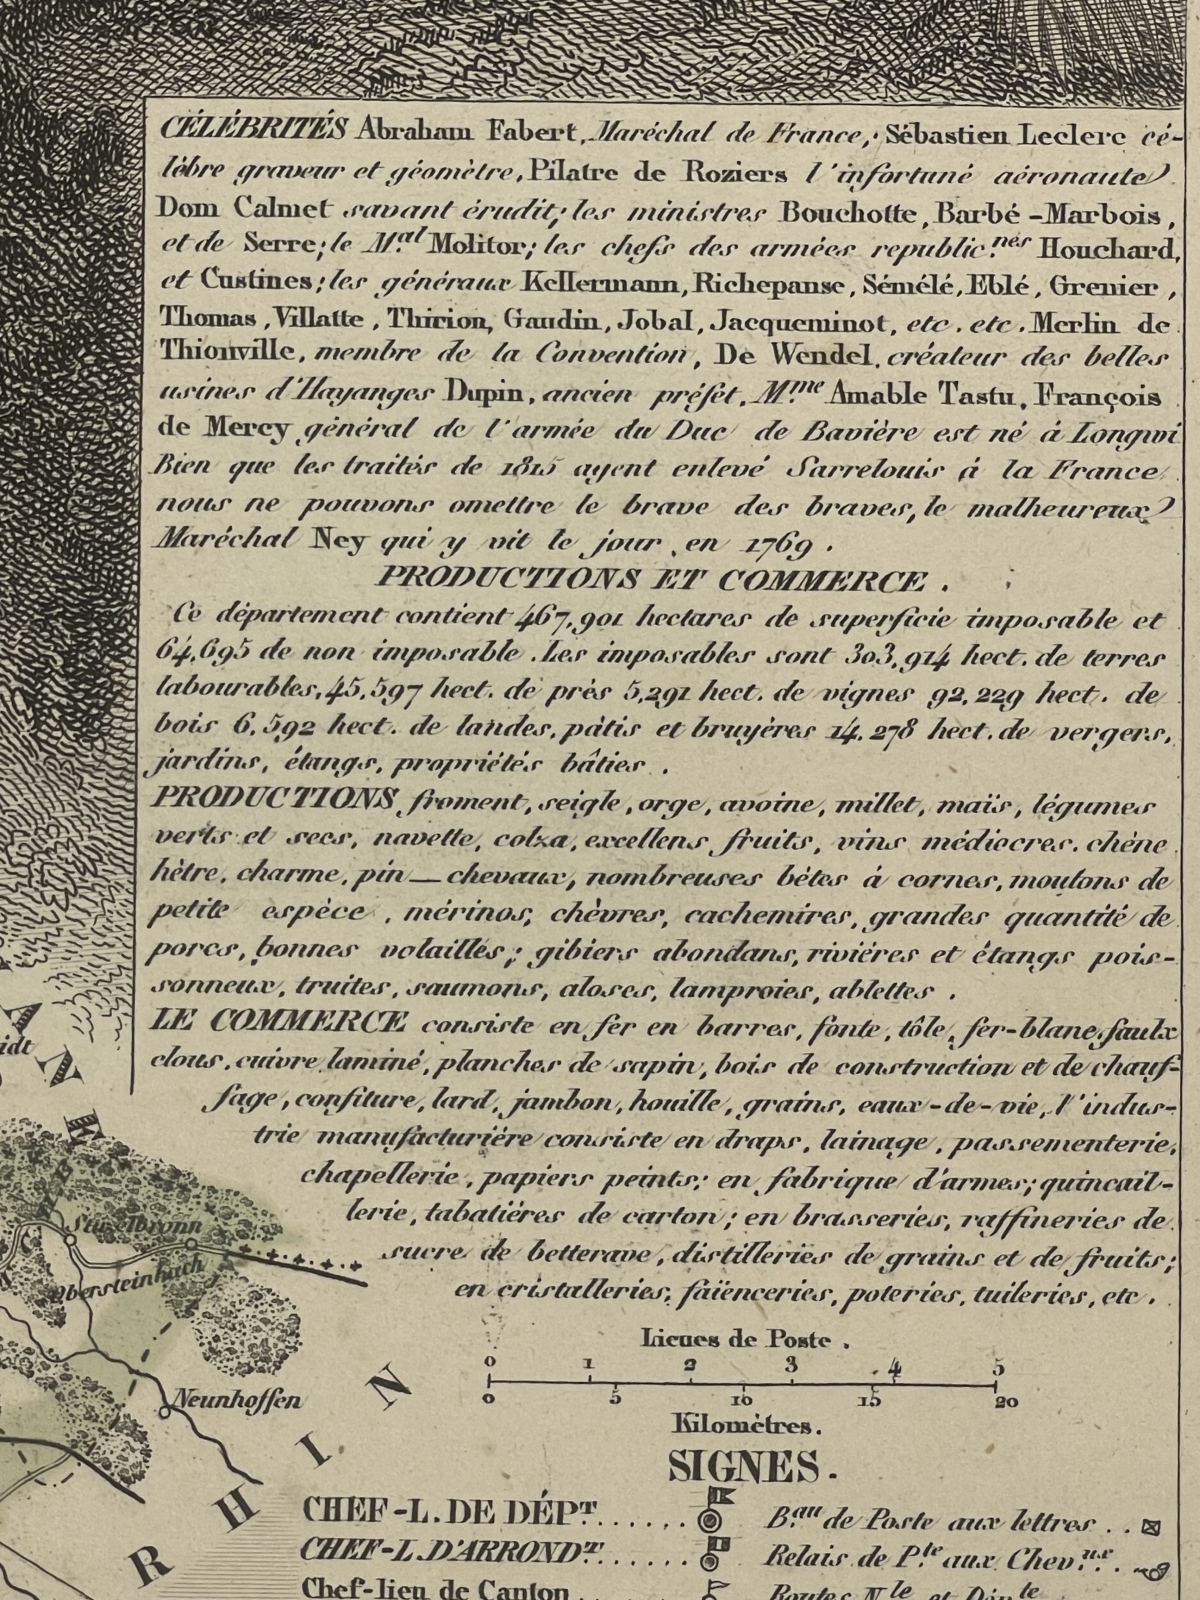 CÉLÉBRITÉS Abraham Fabert, Maréchal de France; Sébastien Leclerc cé-
lèbre graveur et géomètre, Pilatre de Roziers l'infortuné aéronaute
Dom Calmet savant érudit; les ministres Bouchotte, Barbé-Marbois,
et de Serre; le M.al Molitor; les chefs des armées republic.nes Houchard,
et Custines; les généraux Kellermann, Richepanse, Sémélé, Eblé, Grenier,
Thomas, Villatte, Thirion, Gaudin, Jobal, Jacqueminot, etc. etc. Merlin de
Thionville, membre de la Convention, De Wendel, créateur des belles
usines d'Hayanges Dupin, ancien préfet, M.me Amable Tastu, François
de Mercy général de l'armée du Duc de Bavière est né à Longwi
Bien que les traités de 1815 ayent enlevé Sarrelouis à la France
nous ne pouvons omettre le brave des braves, le malheureux
Maréchal Ney qui y vit le jour en 1769.
PRODUCTIONS ET COMMERCE.
Ce département contient 467,901 hectares de superficie imposable et
64,695 de non imposable. Les imposables sont 303,914 hect. de terres
labourables, 45,597 hect. de prés 5,291 hect. de vignes 92,229 hect. de
bois 6,592 hect. de landes, pâtis et bruyères 14,278 hect. de vergers,
jardins, étangs, propriétés bâties.
PRODUCTIONS froment, seigle, orge, avoine, millet, maïs, légumes
verts et secs, navette, colza, excellens fruits, vins médiocres, chêne
hêtre, charme, pin — chevaux, nombreuses bêtes à cornes, moutons de
petite espèce, mérinos, chèvres, cachemires, grandes quantité de
porcs, bonnes volailles; gibiers abondans, rivières et étangs pois-
sonneux, truites, saumons, aloses, lamproies, ablettes.
LE COMMERCE consiste en fer en barres, fonte, tôle, fer-blanc, faulx
clous, cuivre laminé, planches de sapin, bois de construction et de chauf-
fage, confiture, lard, jambon, houille, grains, eaux-de-vie, l'indus-
trie manufacturière consiste en draps, lainage, passementerie,
chapellerie, papiers peints; en fabrique d'armes; quincail-
lerie, tabatières de carton; en brasseries, raffineries de
sucre de betterave, distilleries de grains et de fruits;
en cristalleries, faïenceries, poteries, tuileries, etc.
idt
Sturzelbronn
Obersteinbach
Neunhoffen
R H I N
Lieues de Poste.
0 1 2 3 4 5
0 5 10 15 20
Kilomètres.
SIGNES.
CHEF-L. DE DÉPT. ...... B.au de Poste aux lettres ..
CHEF-L. D'ARRONDT. ...... Relais de P.te aux Chev.ux ..
Chef-lieu de Canton ...... Routes N.le et Dép.le